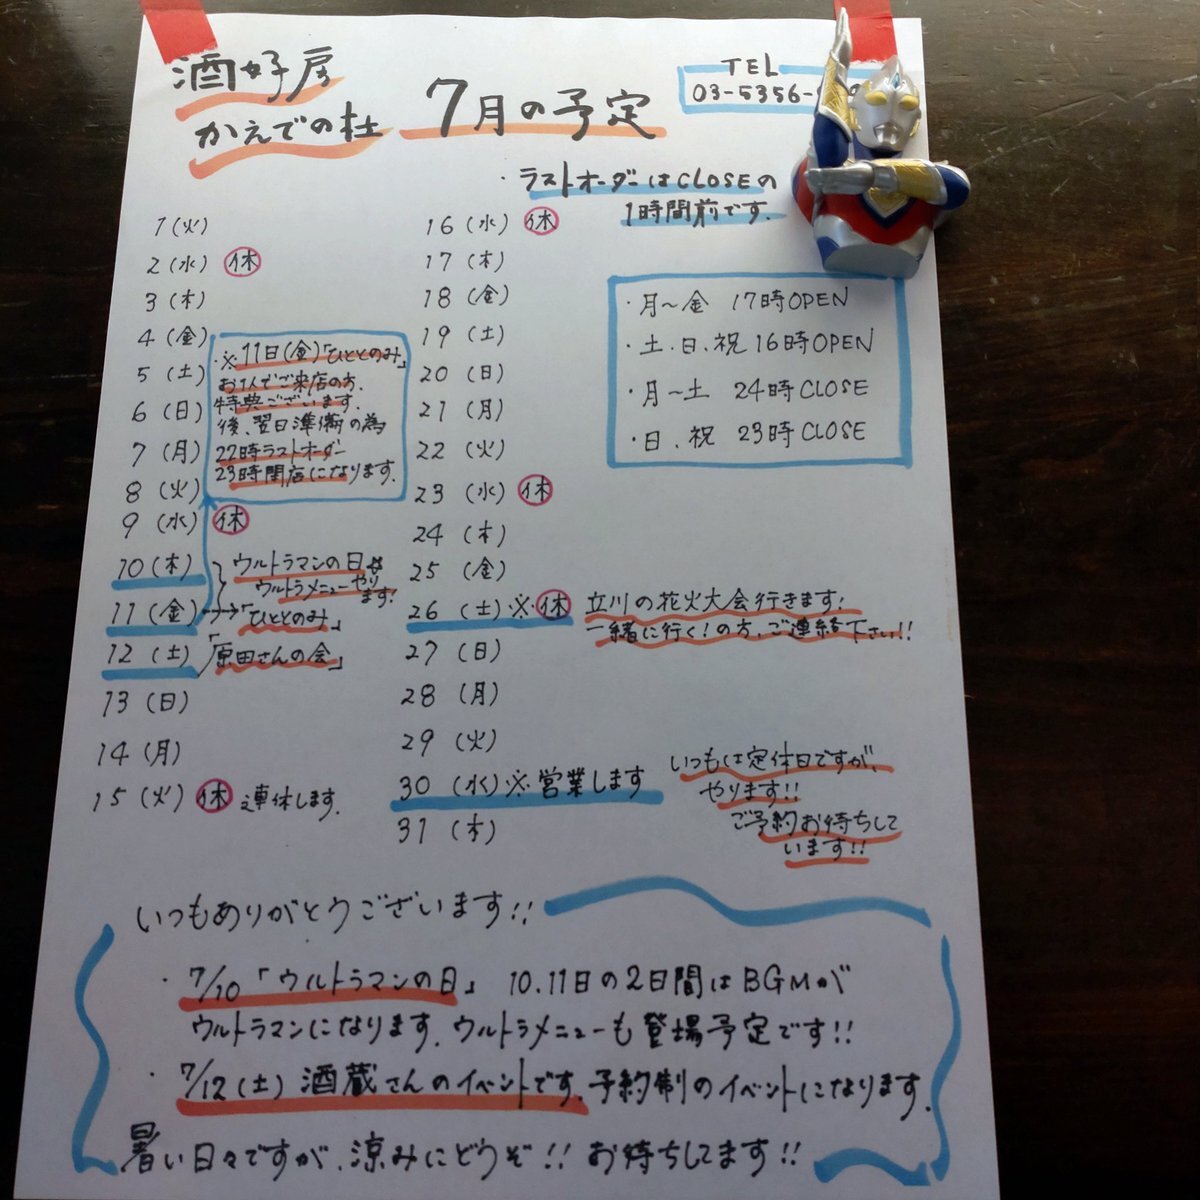 酒好房
かえでの杜
7月の予定
TEL
03-5356-
・ラストオーダーはCLOSEの
1時間前です.
1(火)
2(水) 休
3(木)
4(金)
5(土)
6(日)
7(月)
8(火)
9(水) 休
10(木)
11(金)
12(土)
13(日)
14(月)
15(火) 休 連休します.
※11日(金)「ひととのみ」
お1人でご来店の方、
特典ございます.
後、翌日準備の為
22時ラストオーダー
23時閉店になります.
ウルトラマンの日
ウルトラメニューやり
ます!
「ひととのみ」
「原田さんの会」
16(水) 休
17(木)
18(金)
19(土)
20(日)
21(月)
22(火)
23(水) 休
24(木)
25(金)
26(土)※休 立川の花火大会行きます!
一緒に行く!の方、ご連絡下さい!!
27(日)
28(月)
29(火)
30(水)※営業します
31(木)
いつもは定休日ですが、
やります!!
ご予約お待ちして
います!!
・月〜金 17時OPEN
・土.日.祝 16時OPEN
・月〜土 24時CLOSE
・日.祝 23時CLOSE
いつもありがとうございます!!
・7/10「ウルトラマンの日」 10.11日の2日間はBGMが
ウルトラマンになります.ウルトラメニューも登場予定です!!
・7/12(土)酒蔵さんのイベントです.予約制のイベントになります.
暑い日々ですが、涼みにどうぞ!!お待ちしてます!!